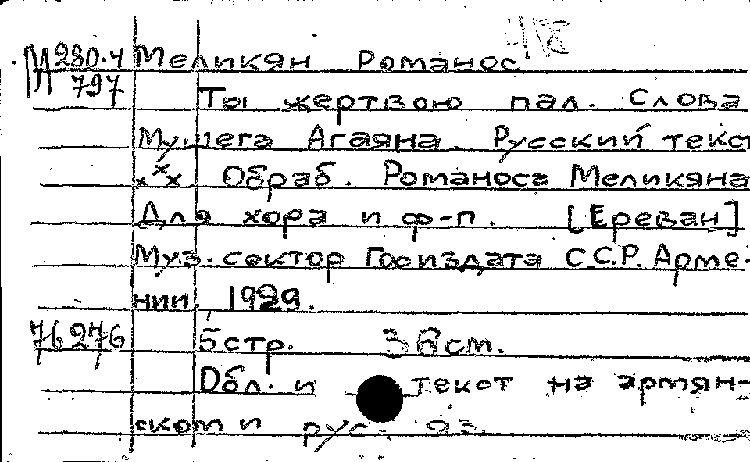 М280.4 Меликян Романос
П 797
Ты жертвою пал. Слова
Мушега Агаяна. Русский текст
xxx Обраб. Романоса Меликяна
Для хора и ф-п. [Ереван]
Муз. сектор Госиздата С.С.Р. Арме-
нии, 1929.
76276 5 стр. см.
Обл. и текст на армян-
ском и рус. яз.